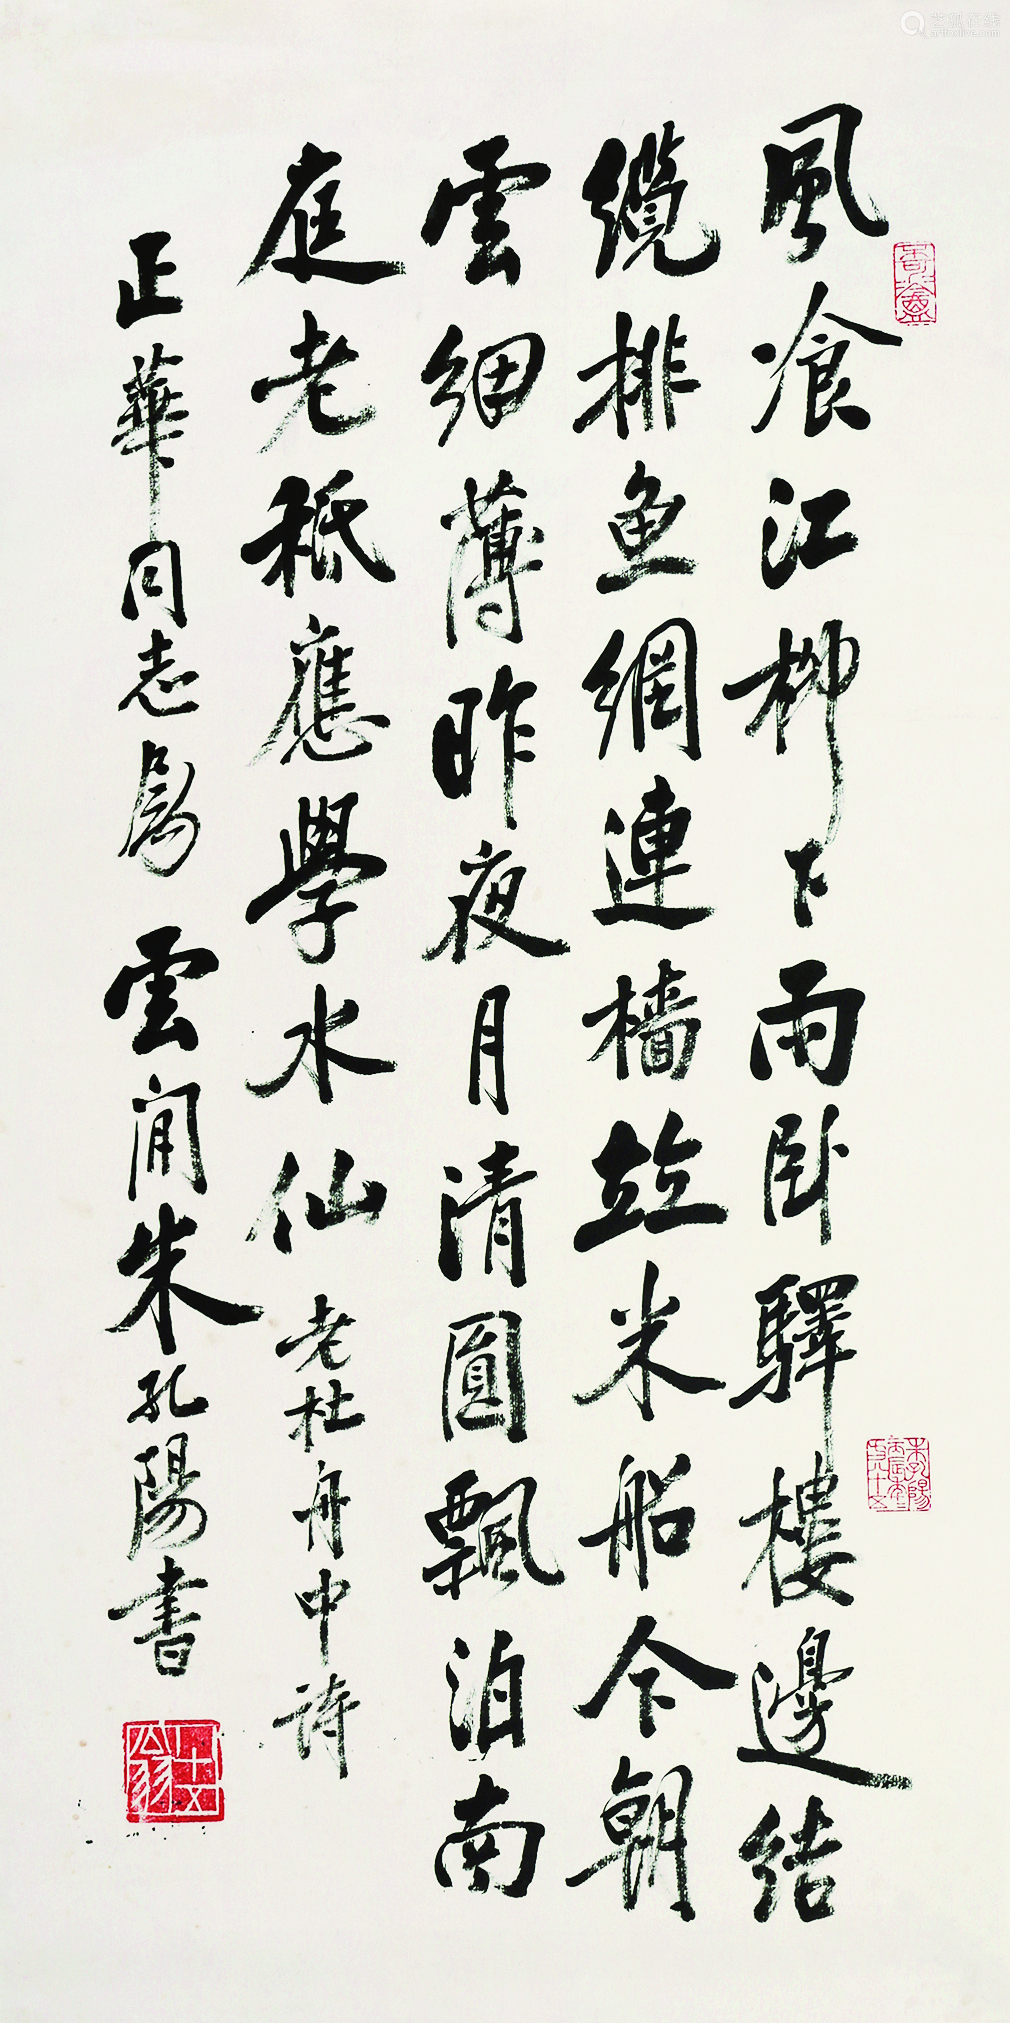 風飡江柳下雨卧驛樓邊結
纜排魚網連檣竝米船今朝
雲細薄昨夜月清圓飄泊南
庭老秪應學水仙 老杜舟中詩
正華同志属 雲間朱孔陽書